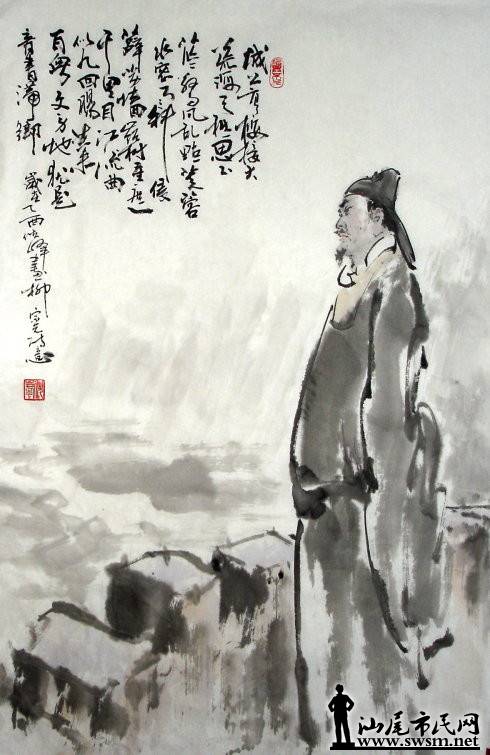 城上高樓接大
荒海天愁思正
茫茫驚風乱颭芙蓉
水密雨斜侵
薜荔墙嶺树重遮
千里目江流曲
似九回腸共来
百粤文身地犹是
音書滞鄉
歲在乙酉畫柳宗元诗意
汕尾市民网
www.swsm.net